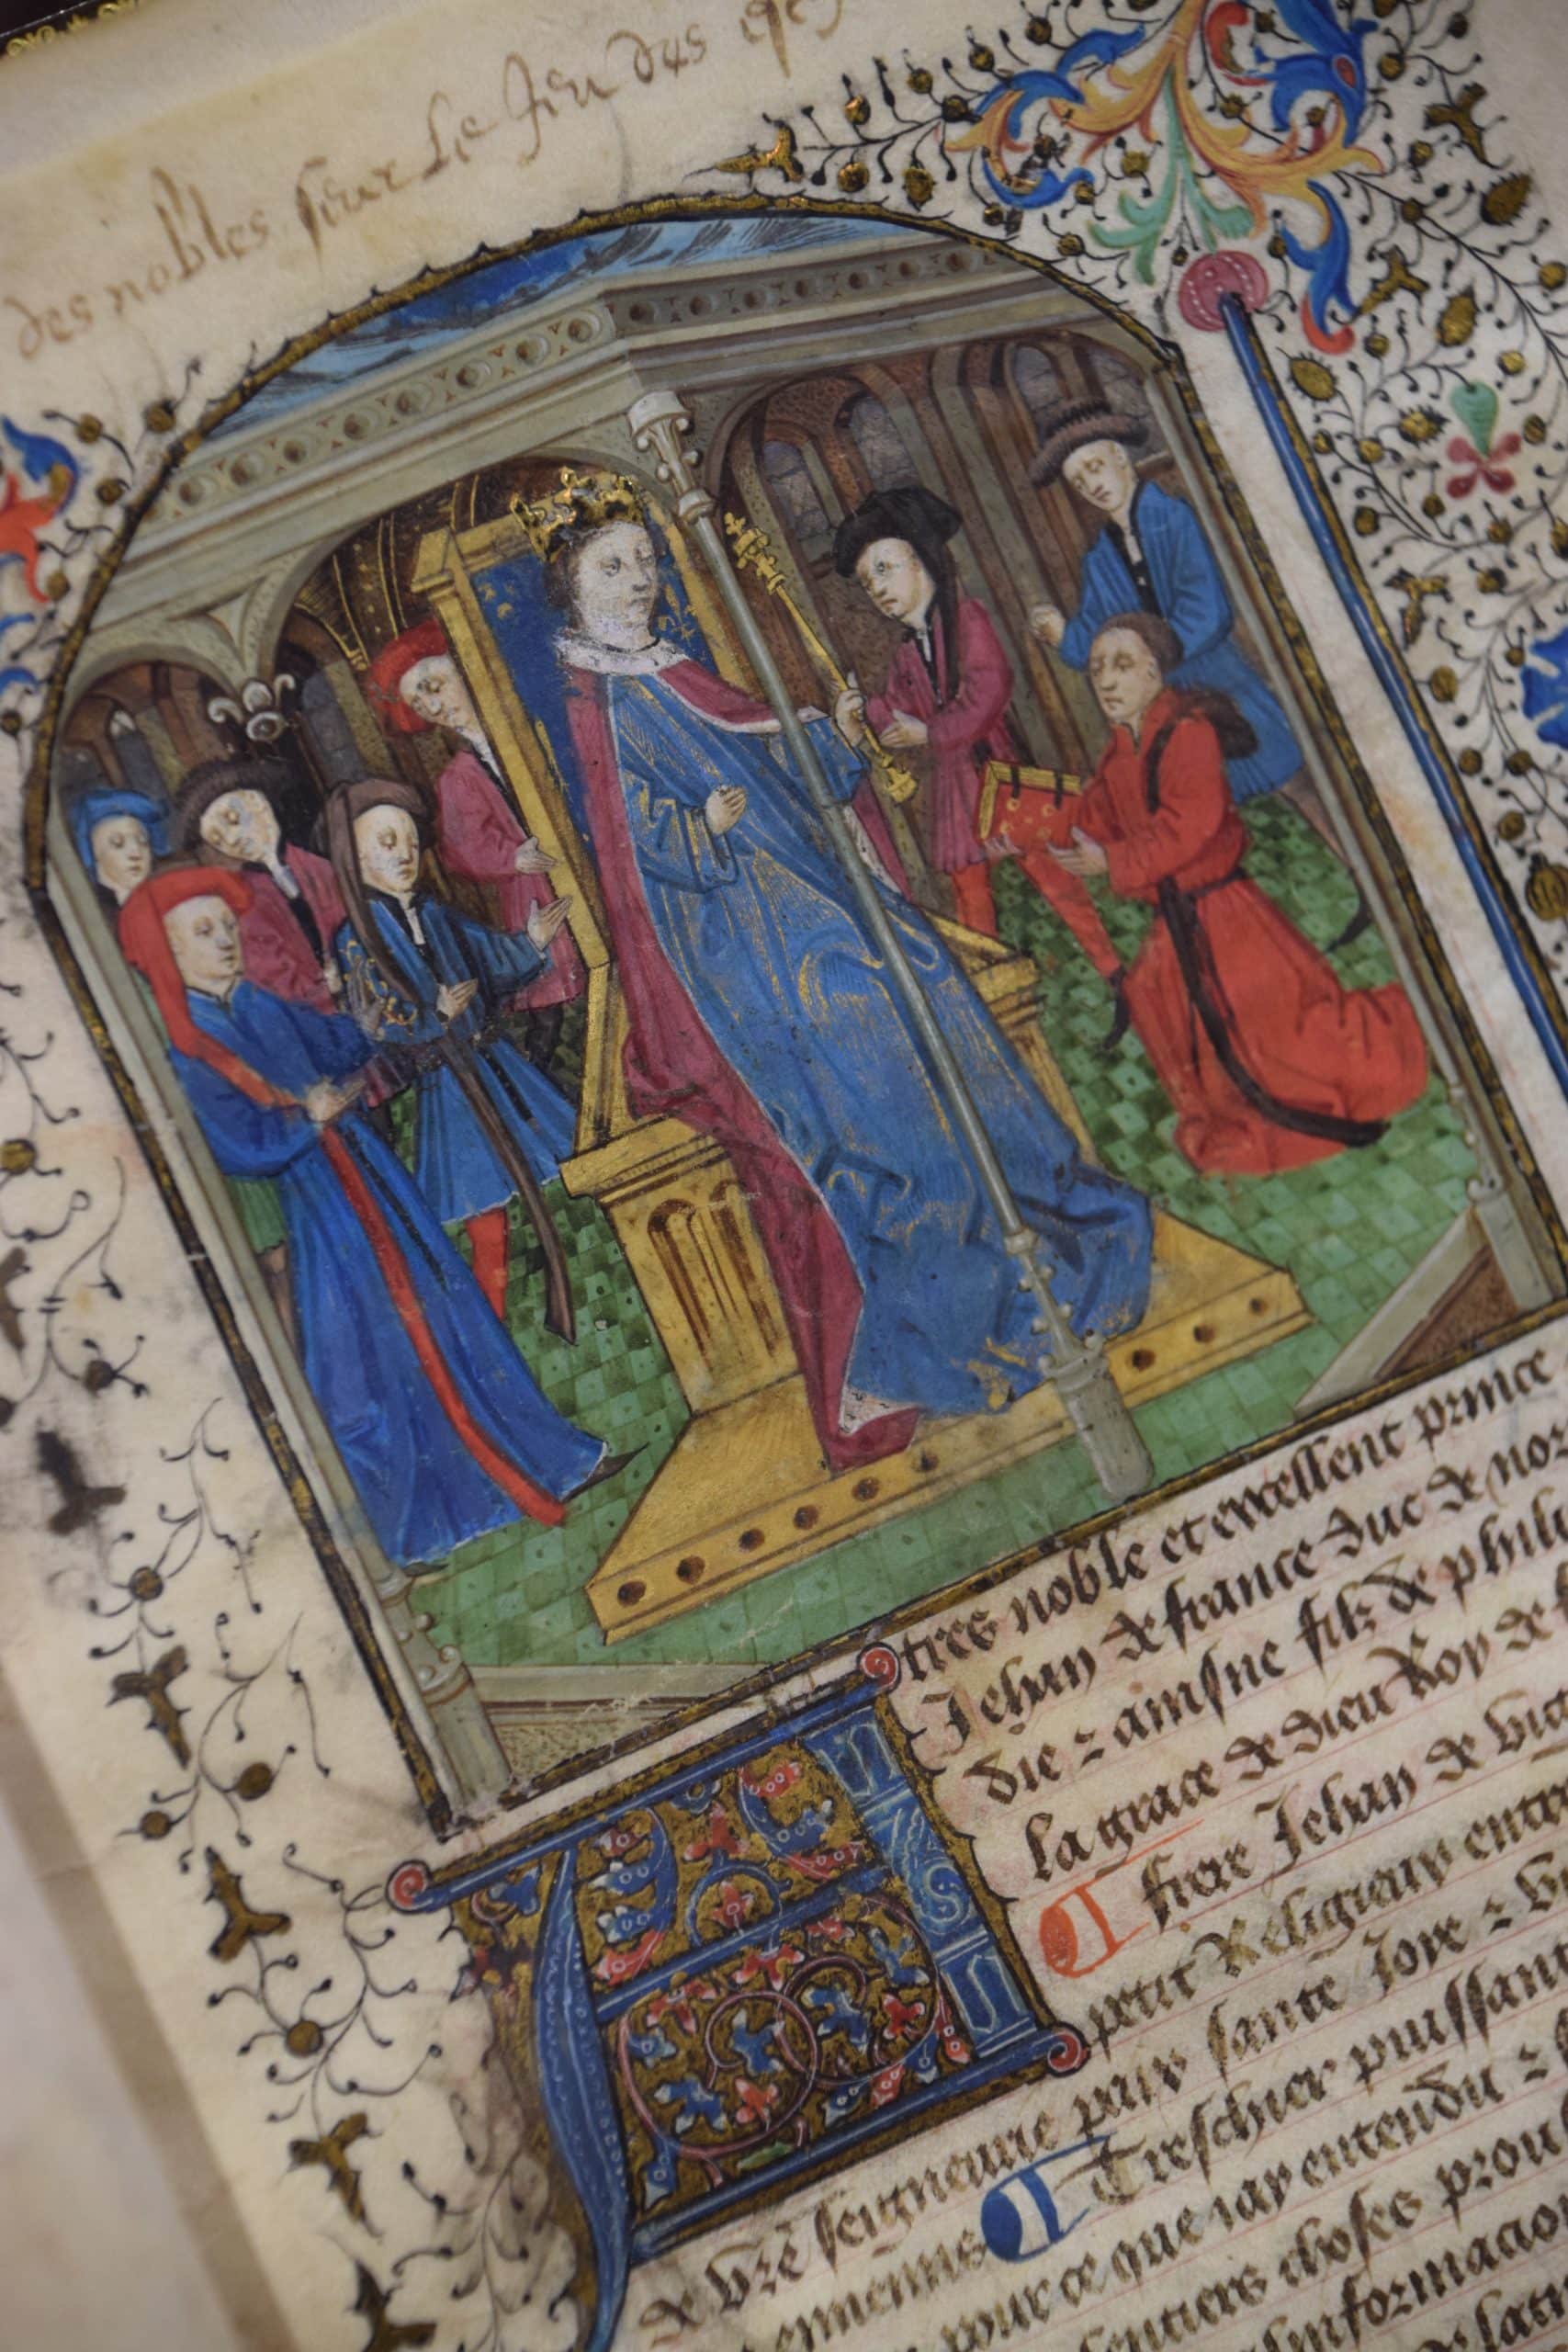 des nobles sur le Jeu des
A tres noble et excellent prince
Jehan de france duc de nor
die z ainsne filz de phili
la grace de dieu Roy de f
¶ frere Jehan de vig
petit Religieux entre
de vre seigneurie paix sante Joye z v
ennemis ¶ Treschier puissant
pour ce que iay entendu z
lentiers choses prou
informacio
lati